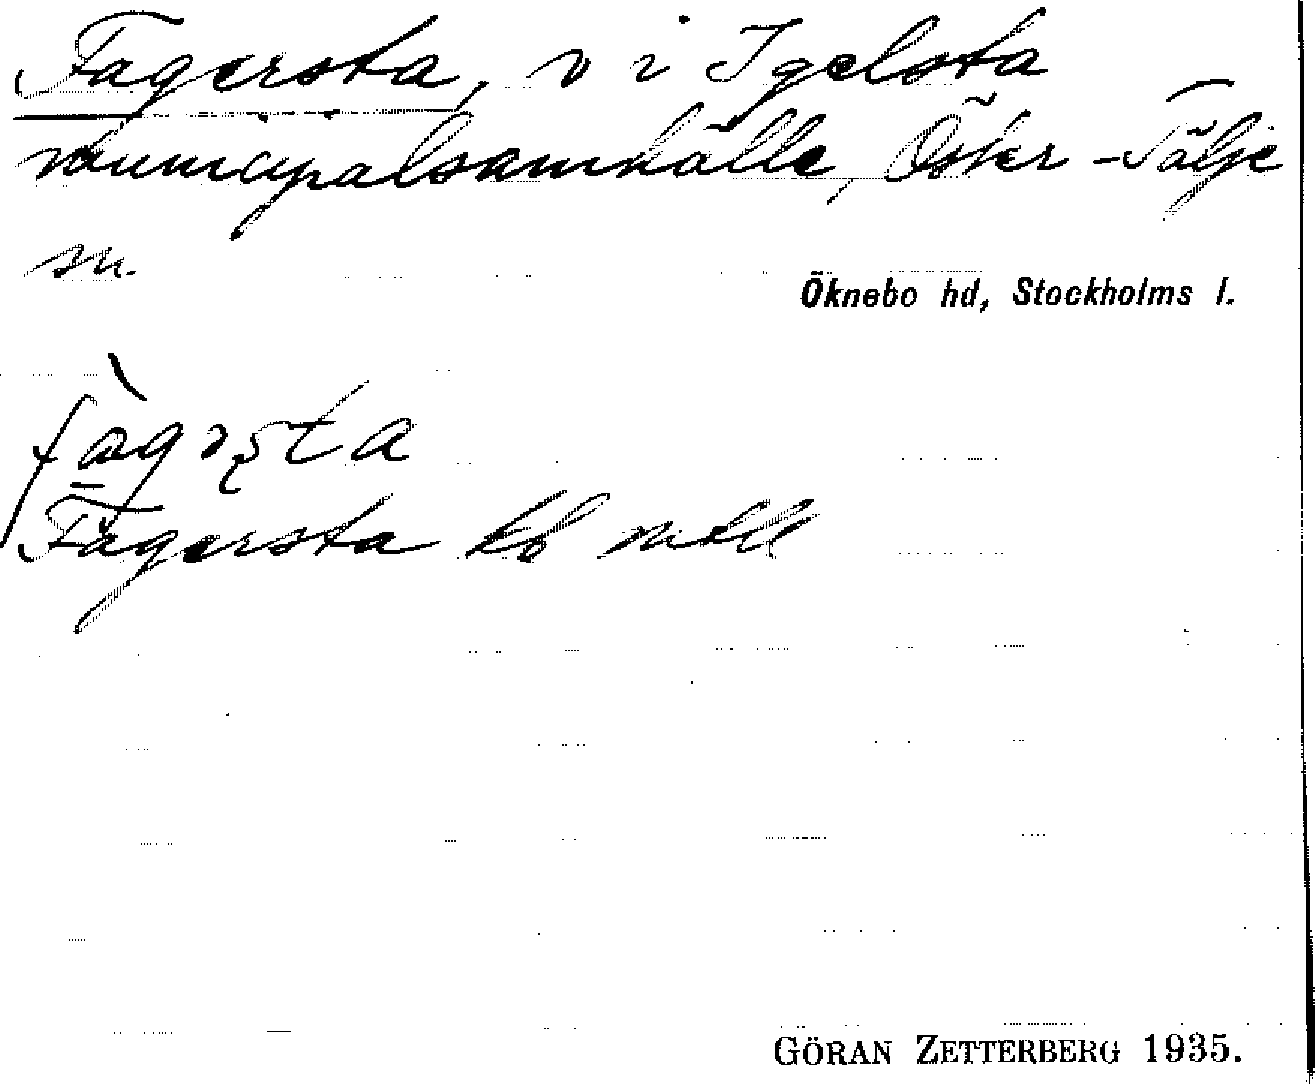 Fagersta, v i Igelsta
municipalsamhälle, Öster-Tälje
sn.
Öknebo hd, Stockholms l.
Fagersta kb
GÖRAN ZETTERBERG 1935.